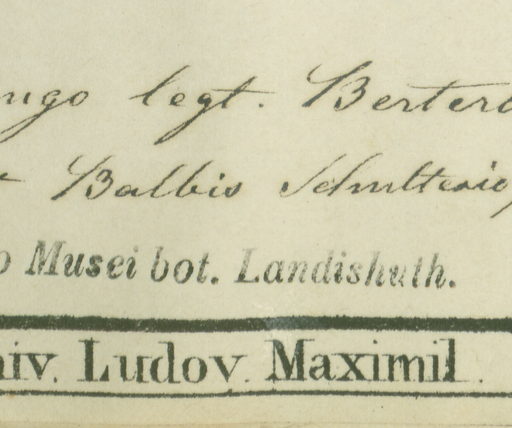 ngo legt. Bertero
Balbis Schultesio,
o Musei bot. Landishuth.
niv. Ludov. Maximil.